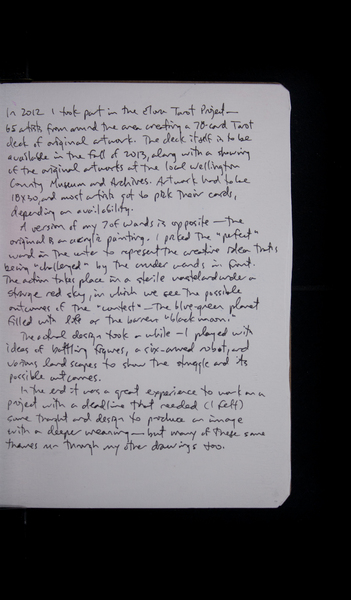 In 2012 I took part in the Elora Tarot Project—
65 artists from around the area creating a 78-card Tarot
deck of original artwork. The deck itself is to be
available in the fall of 2013, along with a showing
of the original artworks at the local Wellington
County Museum and Archives. Artwork had to be
18x30, and most artists got to pick their cards,
depending on availability.
A version of my 7 of Wands is opposite — the
original is an acrylic painting. I picked the "perfect"
wand in the center to represent the creative idea that's
being "challenged" by the cruder wands in front.
The action takes place in a sterile wasteland under a
strange red sky, in which we see the possible
outcomes of the "contest" — the blue-green planet
filled with life or the barren "black moon."
The actual design took a while — I played with
ideas of battling figures, a six-armed robot, and
various landscapes to show the struggle and its
possible outcomes.
In the end it was a great experience to work on a
project with a deadline that needed (I felt)
some thought and design to produce an image
with a deeper meaning — but many of these same
themes run through my other drawings too.